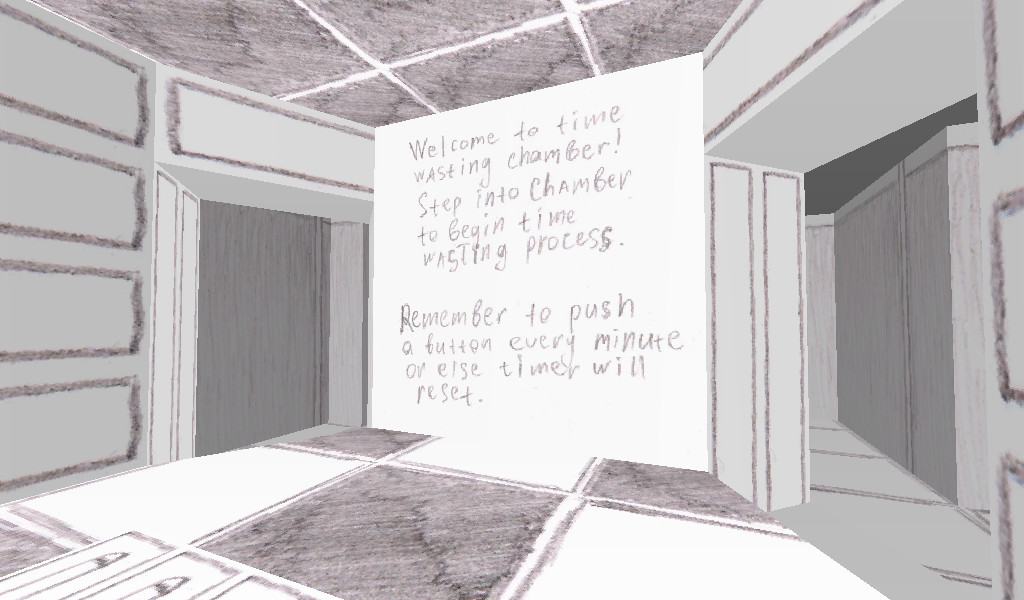 Welcome to time
wasting chamber!
Step into chamber
to begin time
wasting process.
Remember to push
a button every minute
or else timer will
reset.